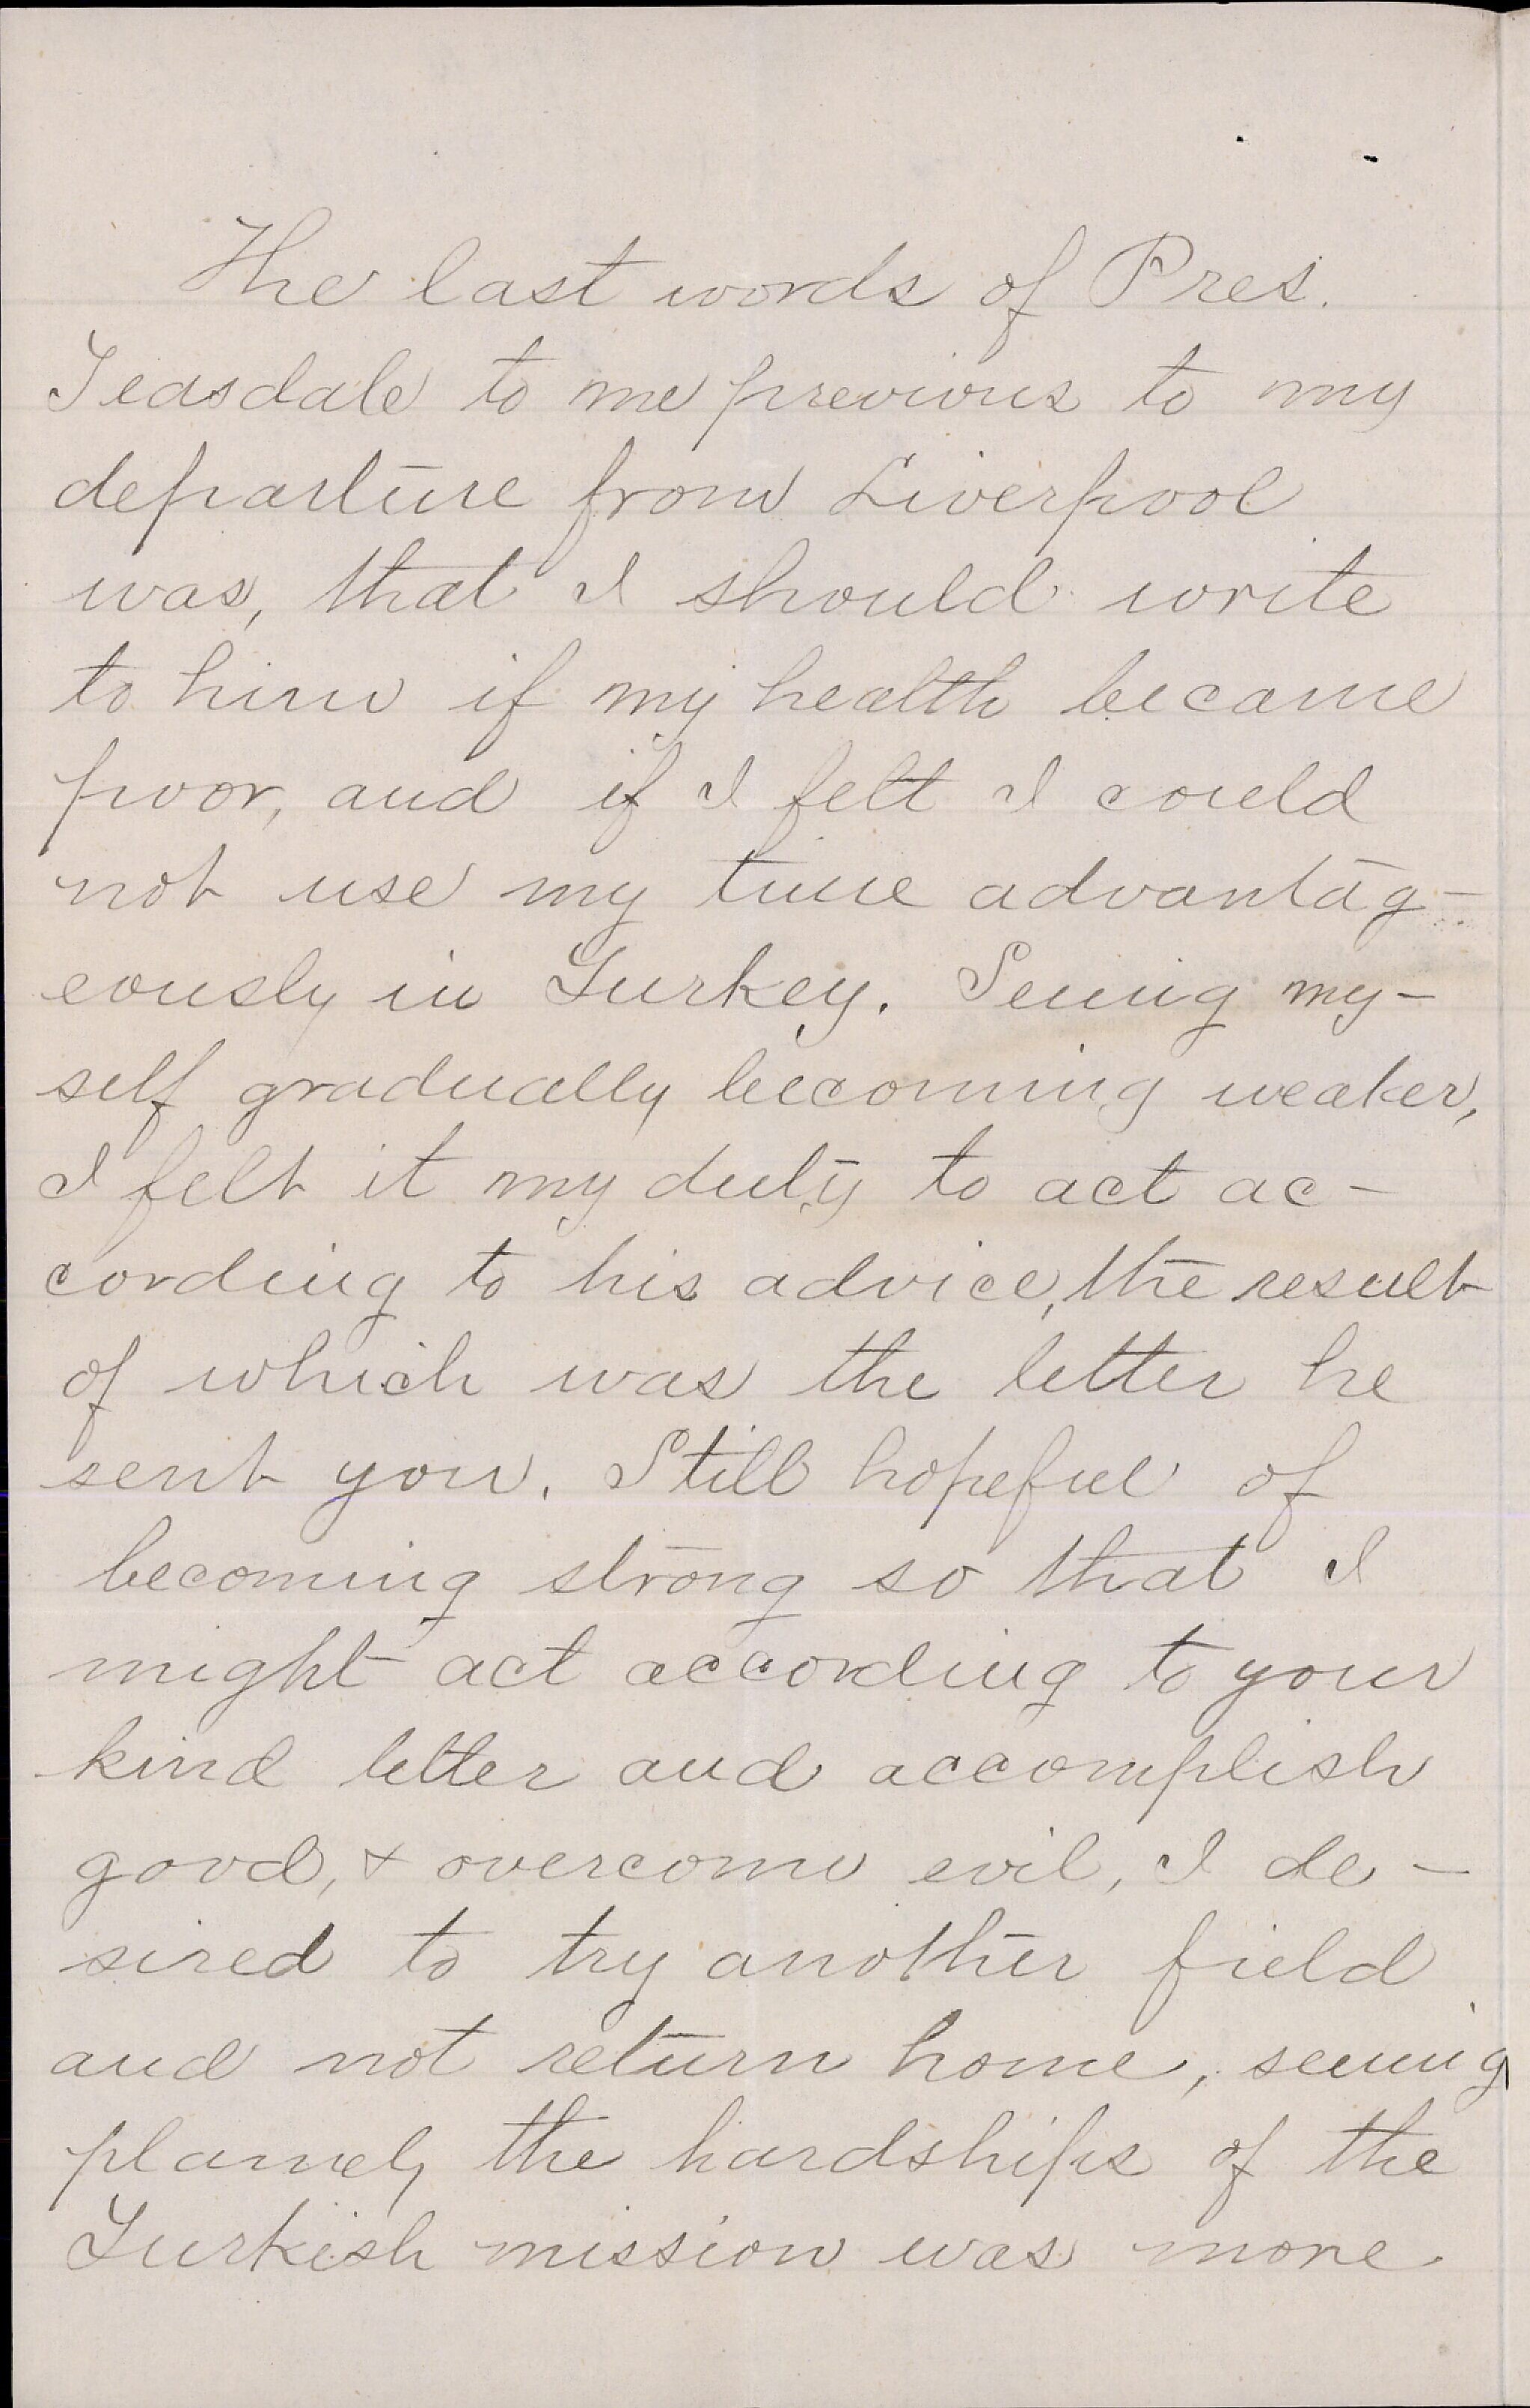 The last words of Pres.
Teasdale to me previous to my
departure from Liverpool
was, that I should write
to him if my health became
poor, and if I felt I could
not use my time advantag-
eously in Turkey. Seeing my-
self gradually becoming weaker,
I felt it my duty to act ac-
cording to his advice, the result
of which was the letter he
sent you. Still hopeful of
becoming strong so that I
might act according to your
kind letter and accomplish
good, & overcome evil, I de-
sired to try another field
and not return home, seeing
plainely the hardships of the
Turkish mission was more